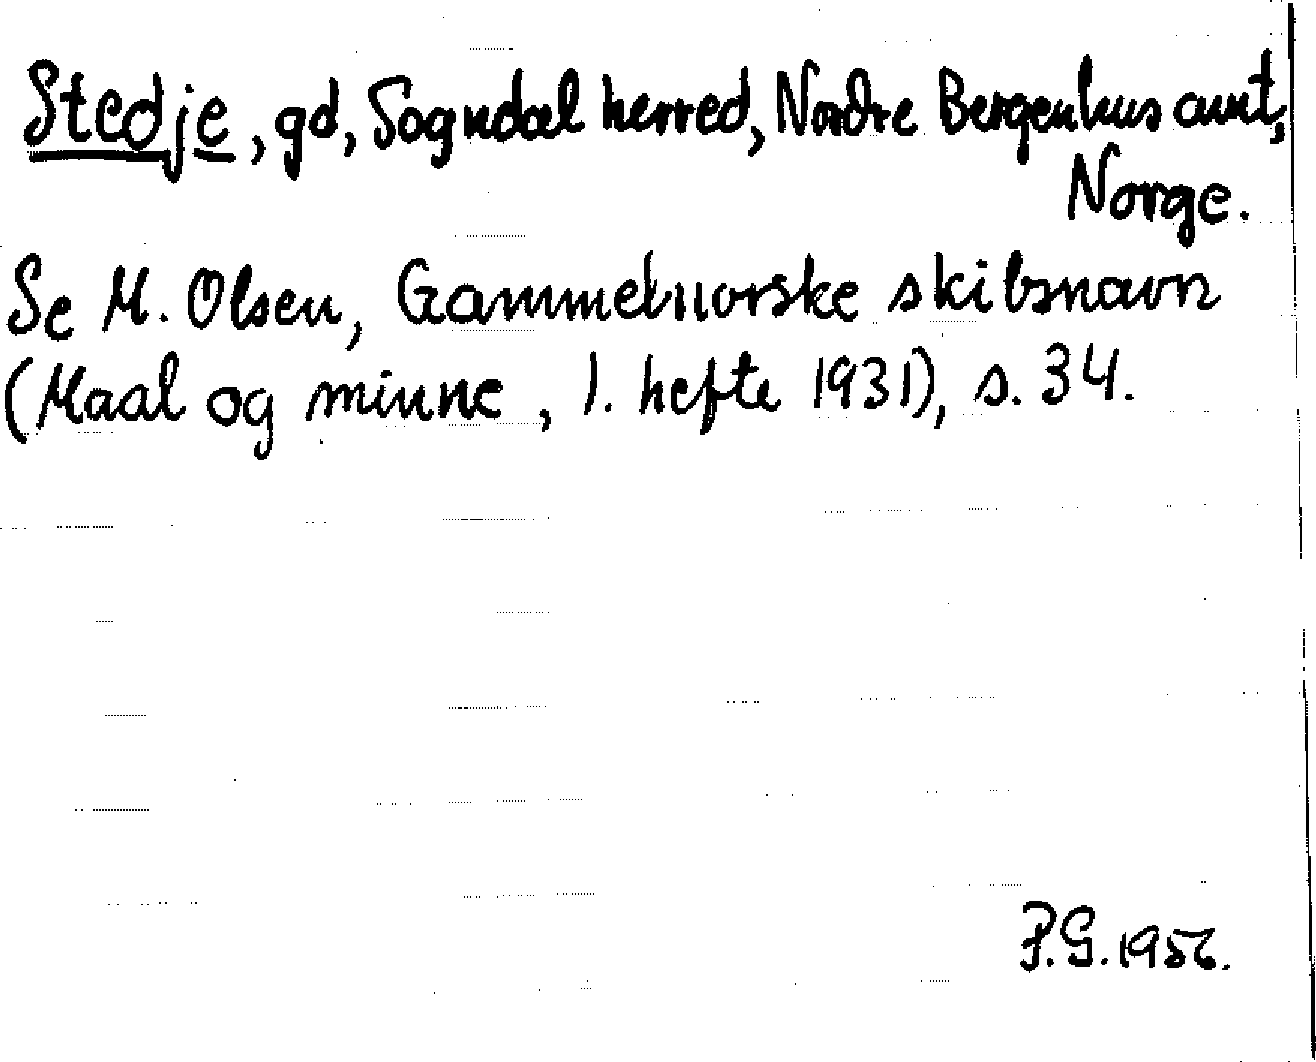 Stedje, gd, Sogndal herred, Nordre Bergenhus amt,
Norge.
Se M. Olsen, Gammelnorske skibsnavn
(Maal og minne, 1. hefte 1931), s. 34.
P.G. 1956.